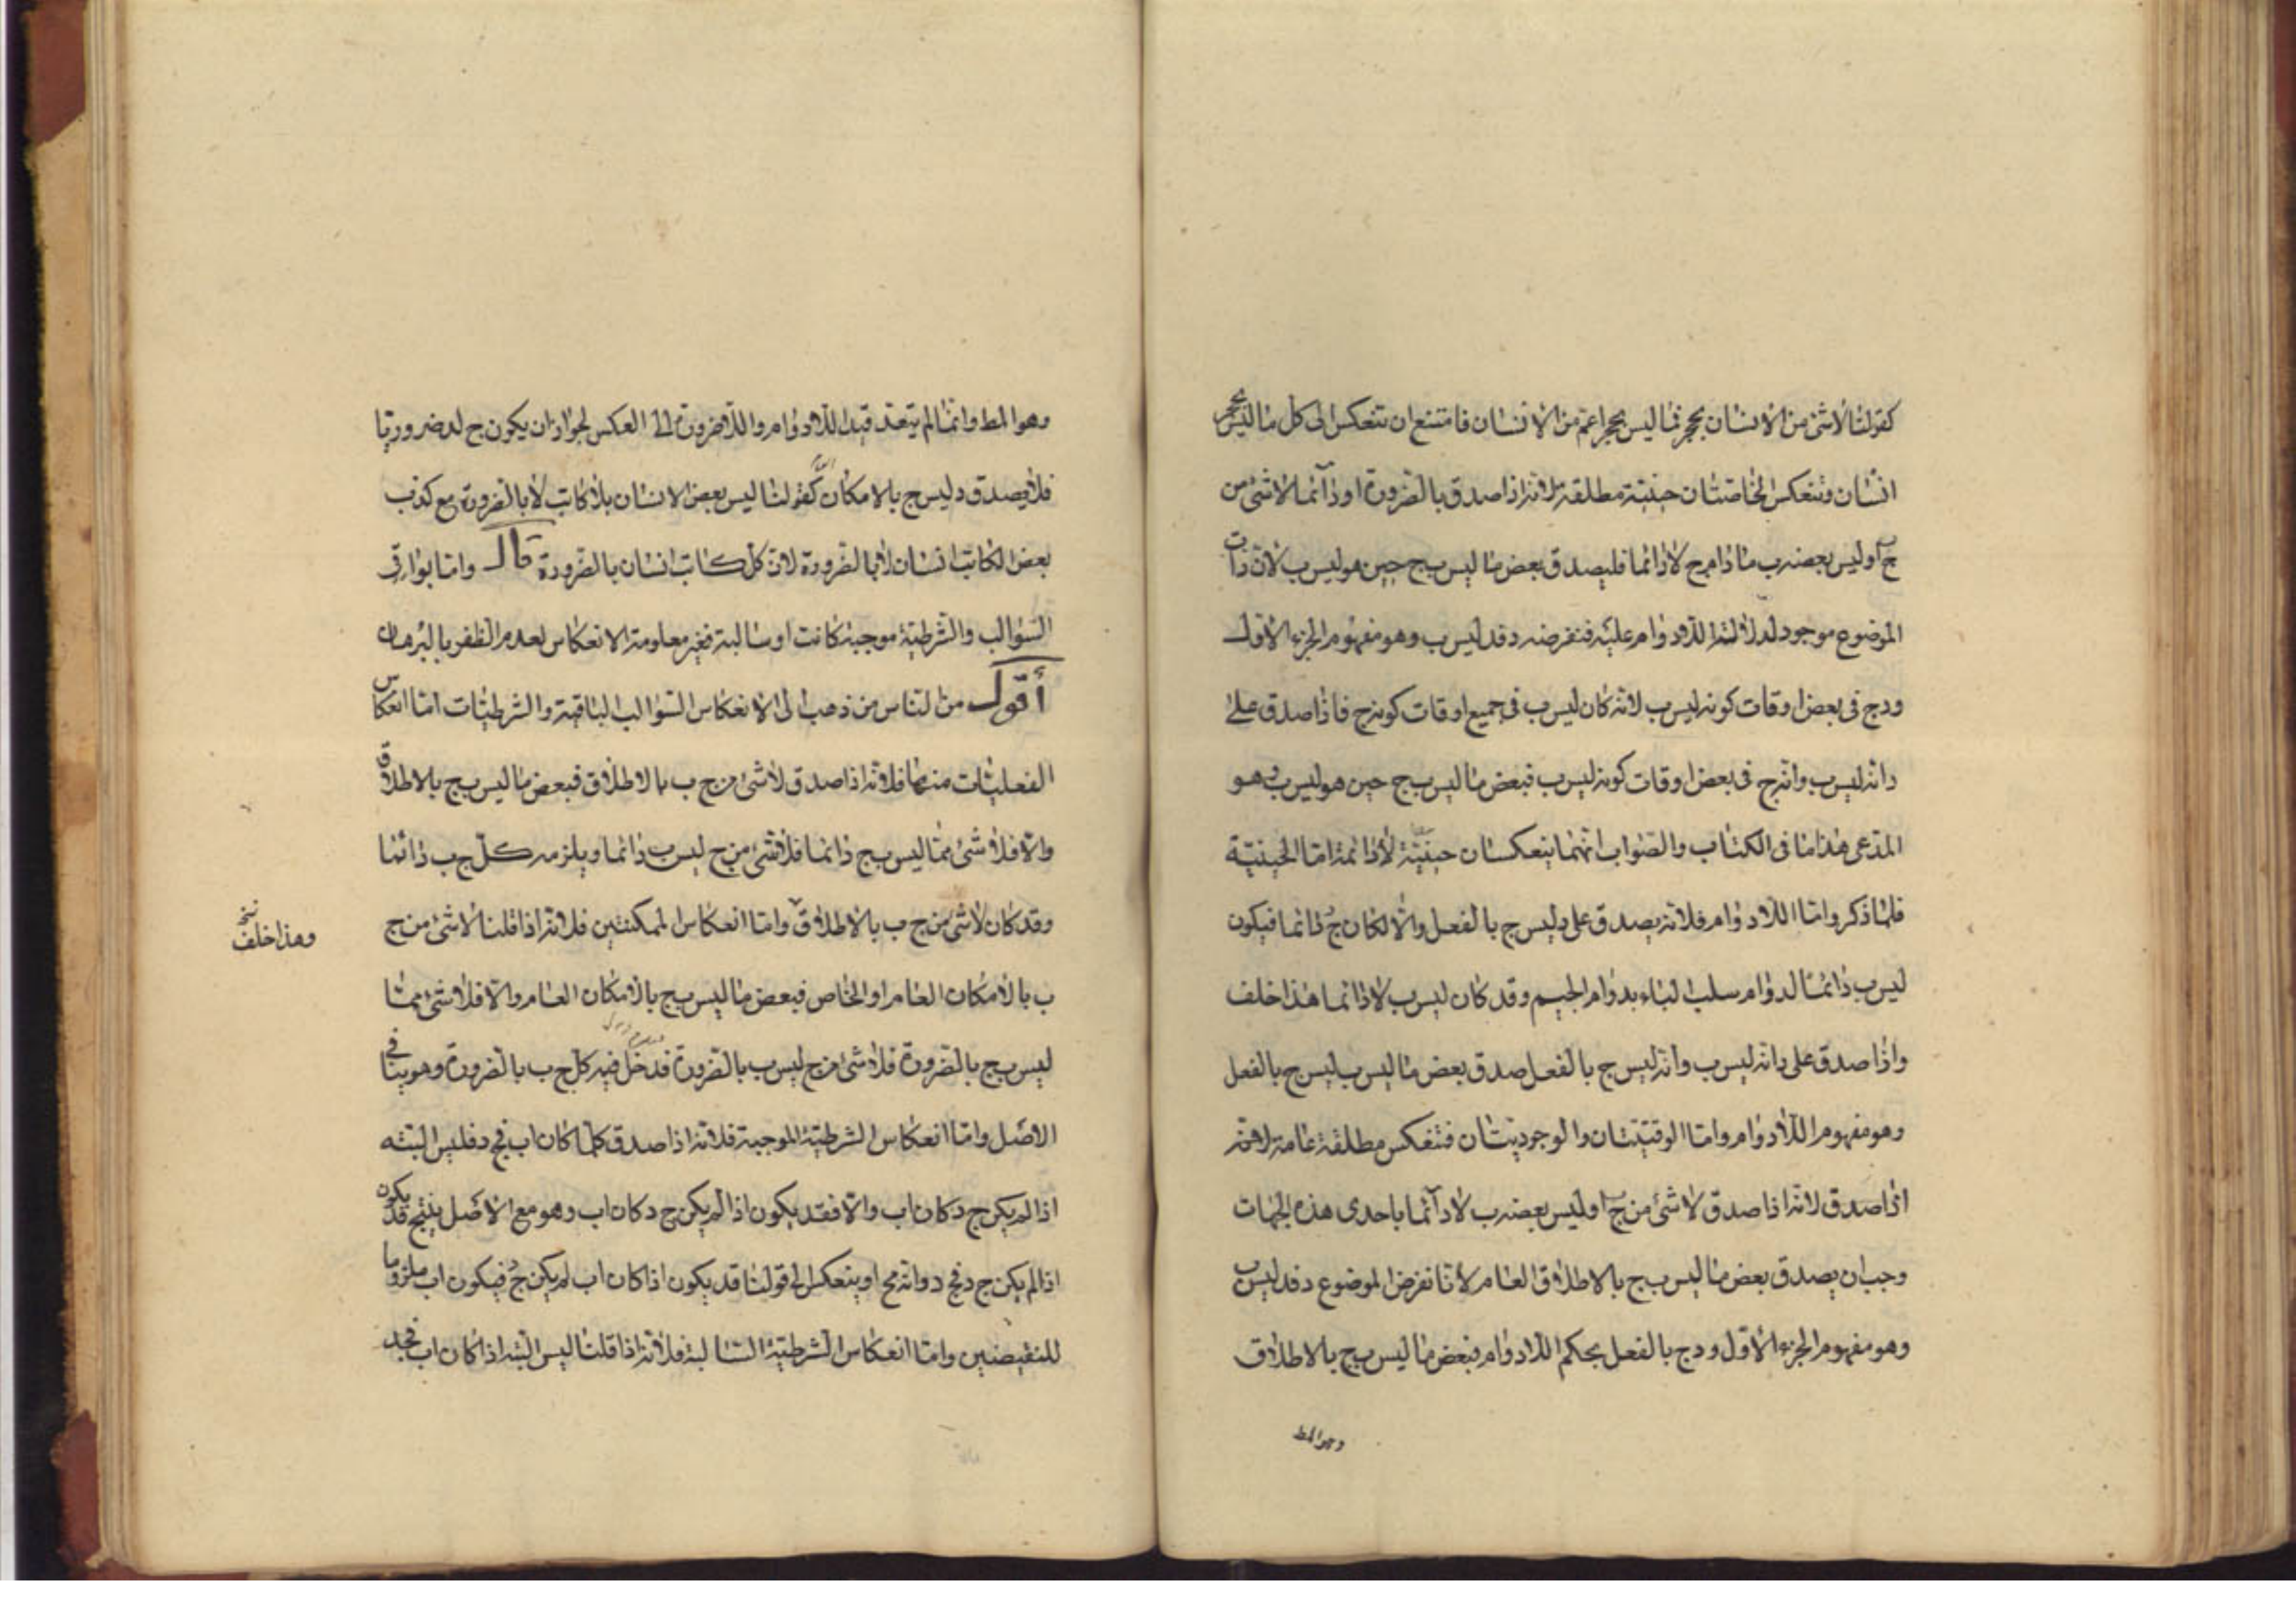 كقولنا لاشئ من الانسان بحجر فما ليس بحجر اعم من الانسان فامتنع ان تنعكس الى كل ما ليس بحجر
انسان وتنعكس الخاصتان حينية مطلقة لانه اذا صدق بالضرورة او دآئما لاشئ من
ج ب او ليس بعضه ب ما دام ج لا دائما فليصدق بعض ما ليس ب ج حين هو ليس ب لان ذات
الموضوع موجود لدلالة اللادوام عليه فنفرضه د فد ليس ب وهو مفهوم الجزء الاول
ود ج فى بعض اوقات كونه ليس ب لانه كان ليس ب فى جميع اوقات كونه ج فاذا صدق على
د انه ليس ب وانه ج فى بعض اوقات كونه ليس ب فبعض ما ليس ب ج حين هو ليس ب وهو
المدعى هذا ما فى الكتاب والصواب انهما ينعكسان حينية لا دائمة اما الحينية
فلما ذكر واما اللادوام فلانه يصدق على د ليس ج بالفعل والا لكان ج دائما فيكون
ليس ب دائما لدوام سلب الباء بدوام الجيم وقد كان ليس ب لا دائما هذا خلف
واذا صدق على د انه ليس ب وانه ليس ج بالفعل صدق بعض ما ليس ب ليس ج بالفعل
وهو مفهوم اللادوام واما الوقتيتان والوجوديتان فتنعكس مطلقة عامة لانه
اذا صدق لانه اذا صدق لا شئ من ج ب او ليس بعضه ب لا دآئما باحدى هذه الجهات
وجب ان يصدق بعض ما ليس ب ج بالاطلاق العام لانا نفرض الموضوع د فد ليس ب
وهو مفهوم الجزء الاول و د ج بالفعل بحكم اللادوام فبعض ما ليس ب ج بالاطلاق
وهو المط
وهو المط وانما لم يتعد قيد اللادوام واللاضرورة الى العكس لجواز ان يكون ج لد ضروريا
فلا يصدق د ليس ج بالامكان كقولنا ليس بعض الانسان بلا كاتب لا بالضرورة مع كذب
بعض الكاتب انسان لا بالضرورة لان كل كاتب انسان بالضرورة قال واما بواقى
السوالب والشرطية موجبة كانت او سالبة فغير معلومة الانعكاس لعدم الظفر بالبرهان
أقول من الناس من ذهب الى الانعكاس السوالب الباقية والشرطيات اما انعكاس
الفعليات منها فلانه اذا صدق لاشئ من ج ب بالاطلاق فبعض ما ليس ب ج بالاطلاق
والا فلا شئ مما ليس ب ج دائما فلا شئ من ج ليس ب دائما ويلزمه كل ج ب دائما
وقد كان لاشئ من ج ب بالاطلاق واما انعكاس الممكنتين فلانه اذا قلنا لاشئ من ج
وهذا خلف نسخ
ب بالامكان العام او الخاص فبعض ما ليس ب ج بالامكان العام والا فلا شئ مما
ليس ب ج بالضرورة فلا شئ من ج ليس ب بالضرورة فدخل فيه كل ج ب بالضرورة وهو ينافى
الاصل واما انعكاس الشرطية الموجبة فلانه اذا صدق كلما كان اب فج د فليس البتة
اذا لم يكن ج د كان اب والا فقد يكون اذا لم يكن ج د كان اب وهو مع الاصل ينتج قد يكون
اذا لم يكن ج د فج د وانه مح او ينعكس الى قولنا قد يكون اذا كان اب لم يكن ج د فيكون اب ملزوما
للنقيضين واما انعكاس الشرطية السالبة فلانه اذا قلنا ليس البتة اذا كان اب فج د